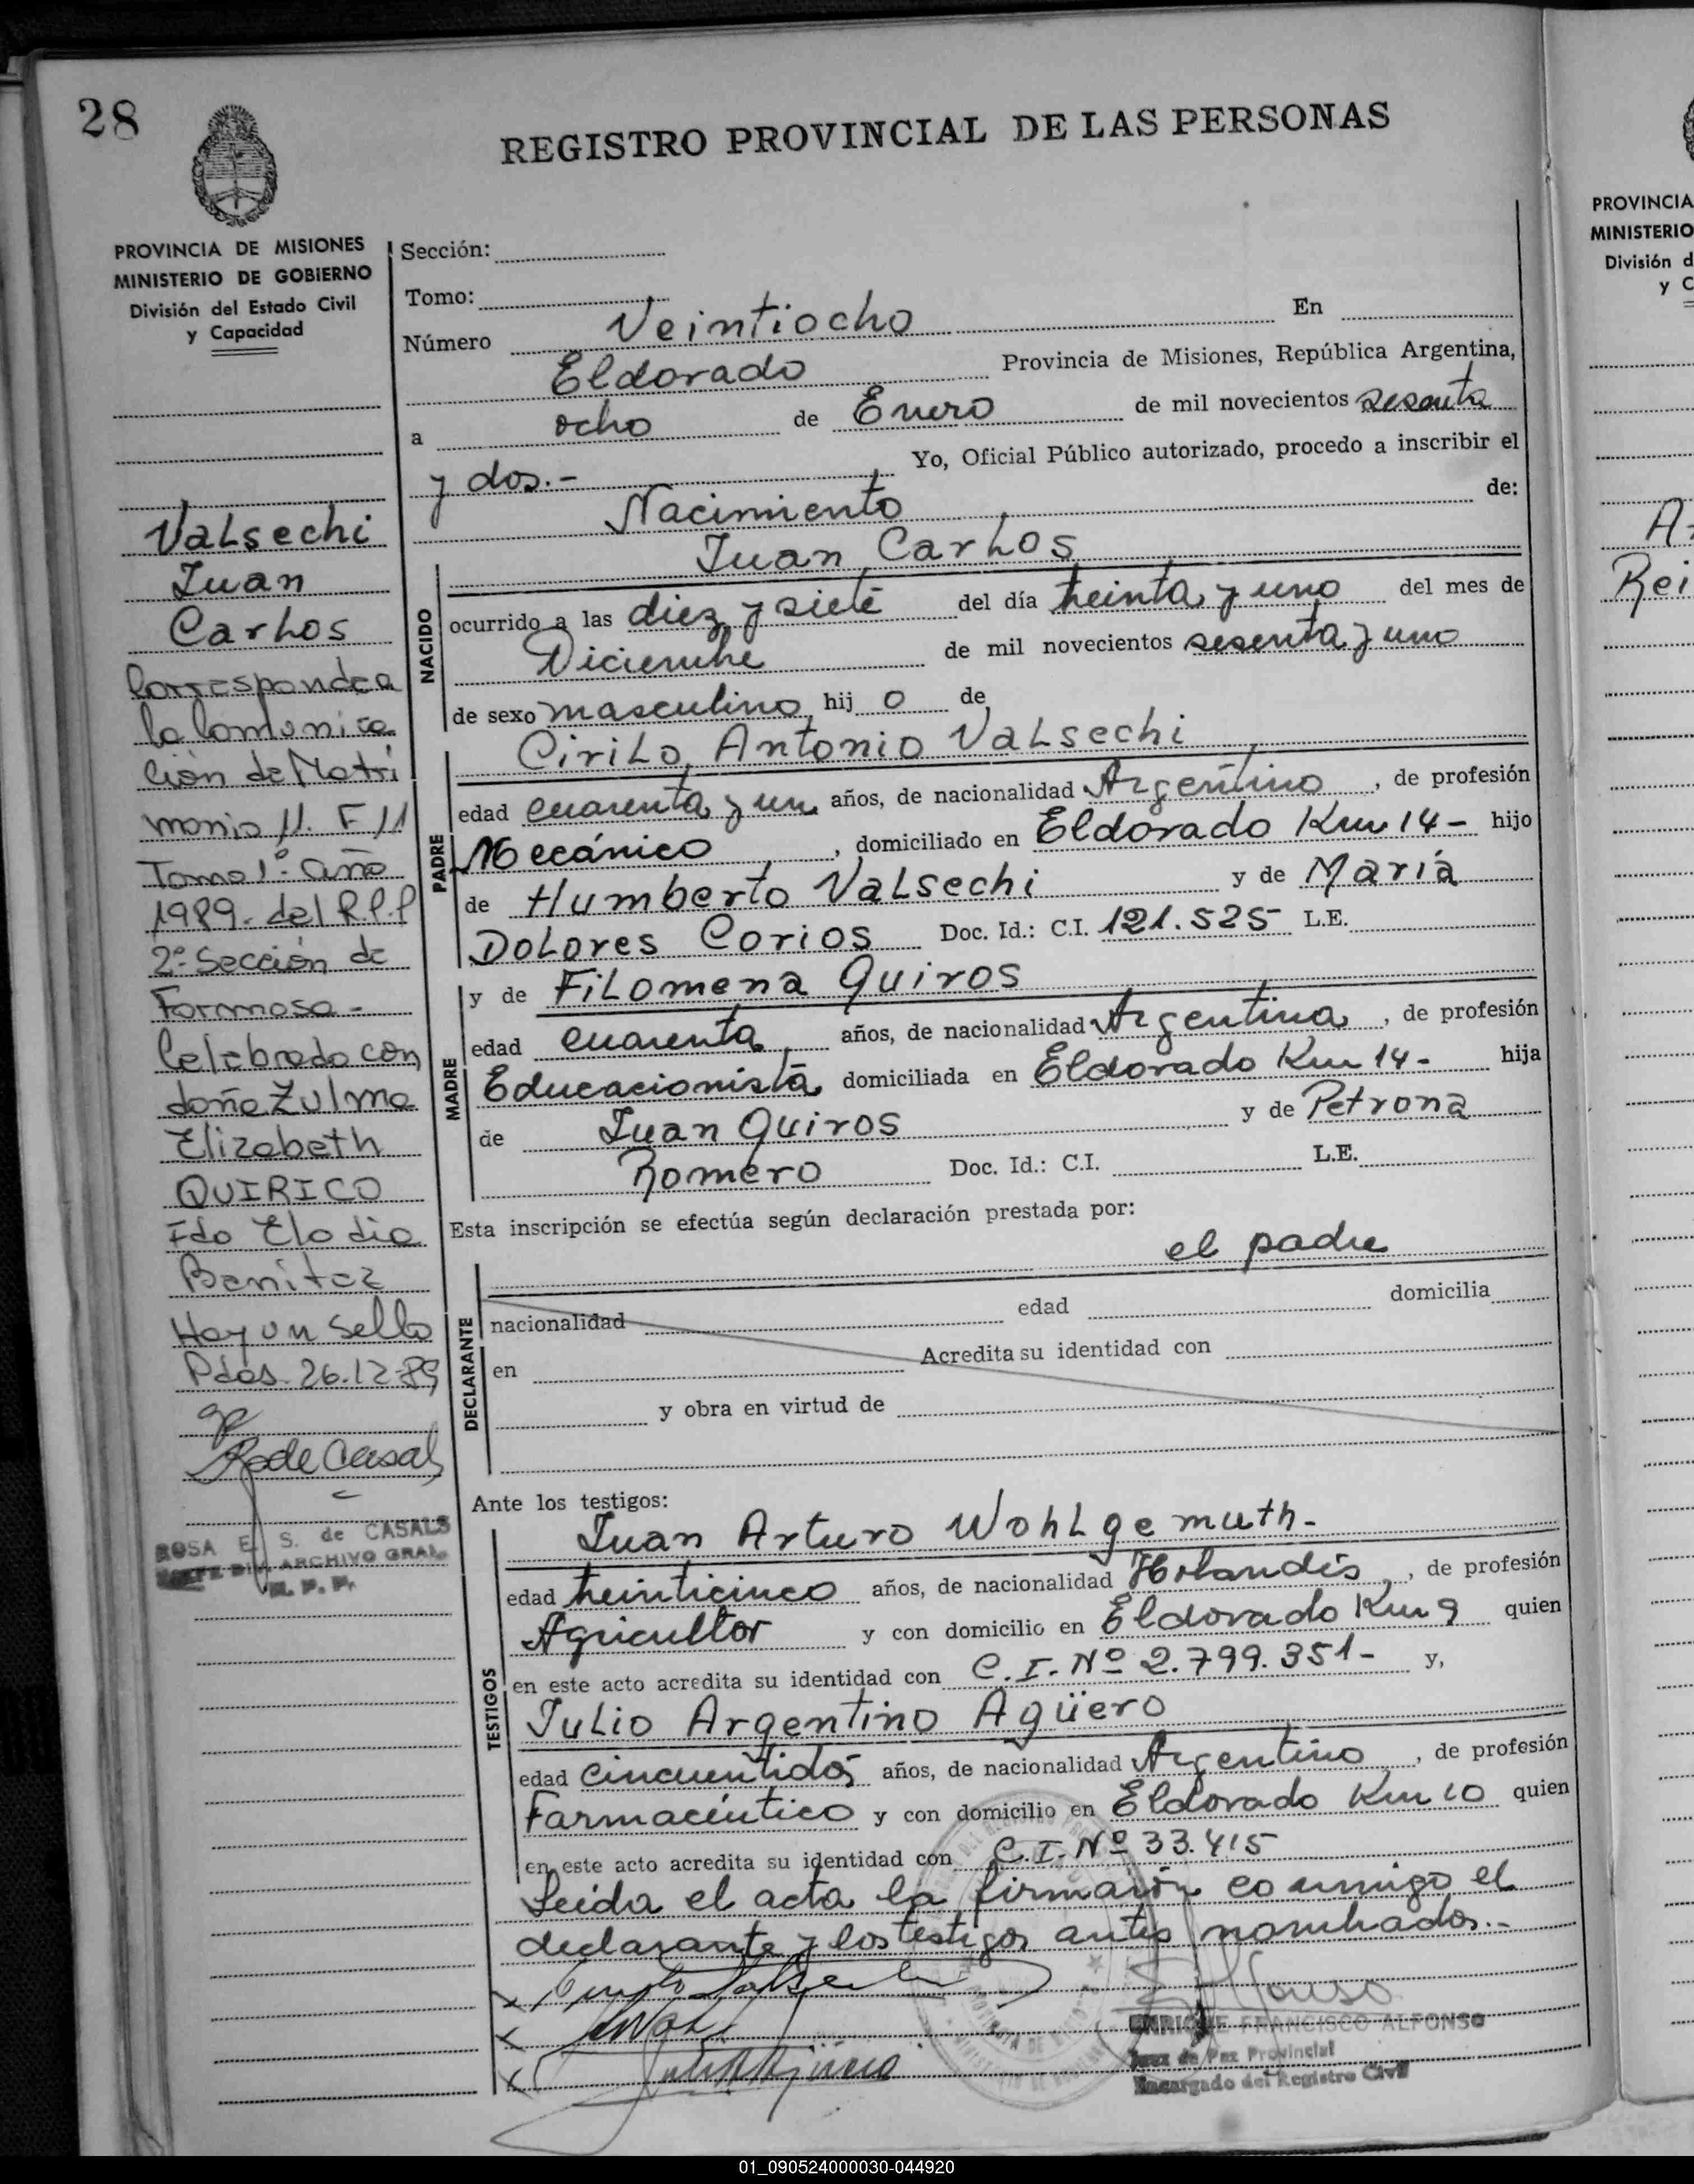 28
REGISTRO PROVINCIAL DE LAS PERSONAS
PROVINCIA DE MISIONES
MINISTERIO DE GOBIERNO
División del Estado Civil
y Capacidad
Valsechi
Juan
Carlos
Corresponde a
la Comunica
ción de Matri
monio
Tomo 1º. año
1989. del R.P.P
2º Sección de
Formosa -
Celebrado con
doña Zulma
Elizabeth
QUIRICO
Fdo Elodia
Benitez
Hay un sello
Pdas. 26.12.89
ROSA E. S. de CASALS
ARCHIVO GRAL.
R. P. P.
Sección:
Tomo:
Número Veintiocho En
Eldorado Provincia de Misiones, República Argentina,
a ocho de Enero de mil novecientos sesenta
y dos.- Yo, Oficial Público autorizado, procedo a inscribir el
Nacimiento de:
Juan Carlos
NACIDO
ocurrido a las diez y siete del día treinta y uno del mes de
Diciembre de mil novecientos sesenta y uno
de sexo masculino hij o de
Cirilo Antonio Valsechi
PADRE
edad cuarenta y un años, de nacionalidad Argentino, de profesión
Mecánico, domiciliado en Eldorado Km 14- hijo
de Humberto Valsechi y de María
Dolores Corios Doc. Id.: C.I. 121.525 L.E.
y de Filomena Quiros
MADRE
edad cuarenta años, de nacionalidad Argentina, de profesión
Educacionista domiciliada en Eldorado Km 14- hija
de Juan Quiros y de Petrona
Romero Doc. Id.: C.I. L.E.
Esta inscripción se efectúa según declaración prestada por:
el padre
DECLARANTE
nacionalidad edad domicilia
en Acredita su identidad con
y obra en virtud de
Ante los testigos:
TESTIGOS
Juan Arturo Wohlgemuth-
edad treinticinco años, de nacionalidad Holandés, de profesión
Agricultor y con domicilio en Eldorado Km 9 quien
en este acto acredita su identidad con C.I. Nº 2.799.351- y,
Julio Argentino Agüero
edad cincuentidos años, de nacionalidad Argentino, de profesión
Farmacéutico y con domicilio en Eldorado Km 10 quien
en este acto acredita su identidad con C.I. Nº 33.415
Leida el acta la firmaron conmigo el
declarante y los testigos antes nombrados.-
ENRIQUE FRANCISCO ALFONSO
Juez de Paz Provincial
Encargado del Registro Civil
PROVINCIA
MINISTERIO
División d
y C
Rei
01_090524000030-044920